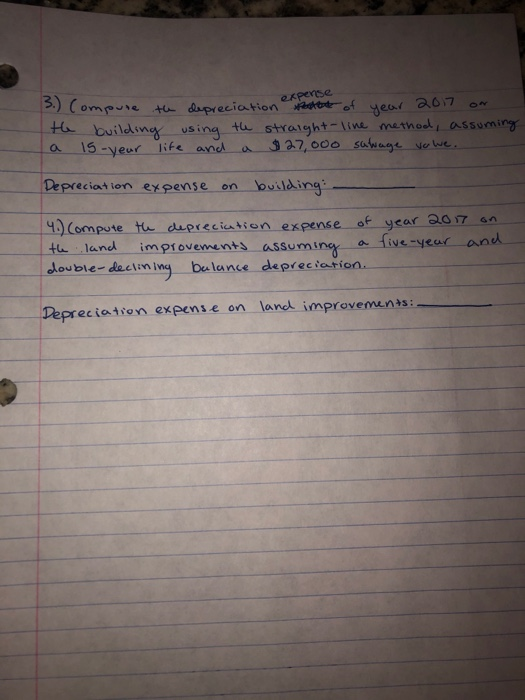 3.) Compute the depreciation expense of year 2017 on
the building using the straight-line method, assuming
a 15-year life and a $27,000 salvage value.
Depreciation expense on building:
4.) Compute the depreciation expense of year 2017 on
the land improvements assuming a five-year and
double-declining balance depreciation.
Depreciation expense on land improvements: